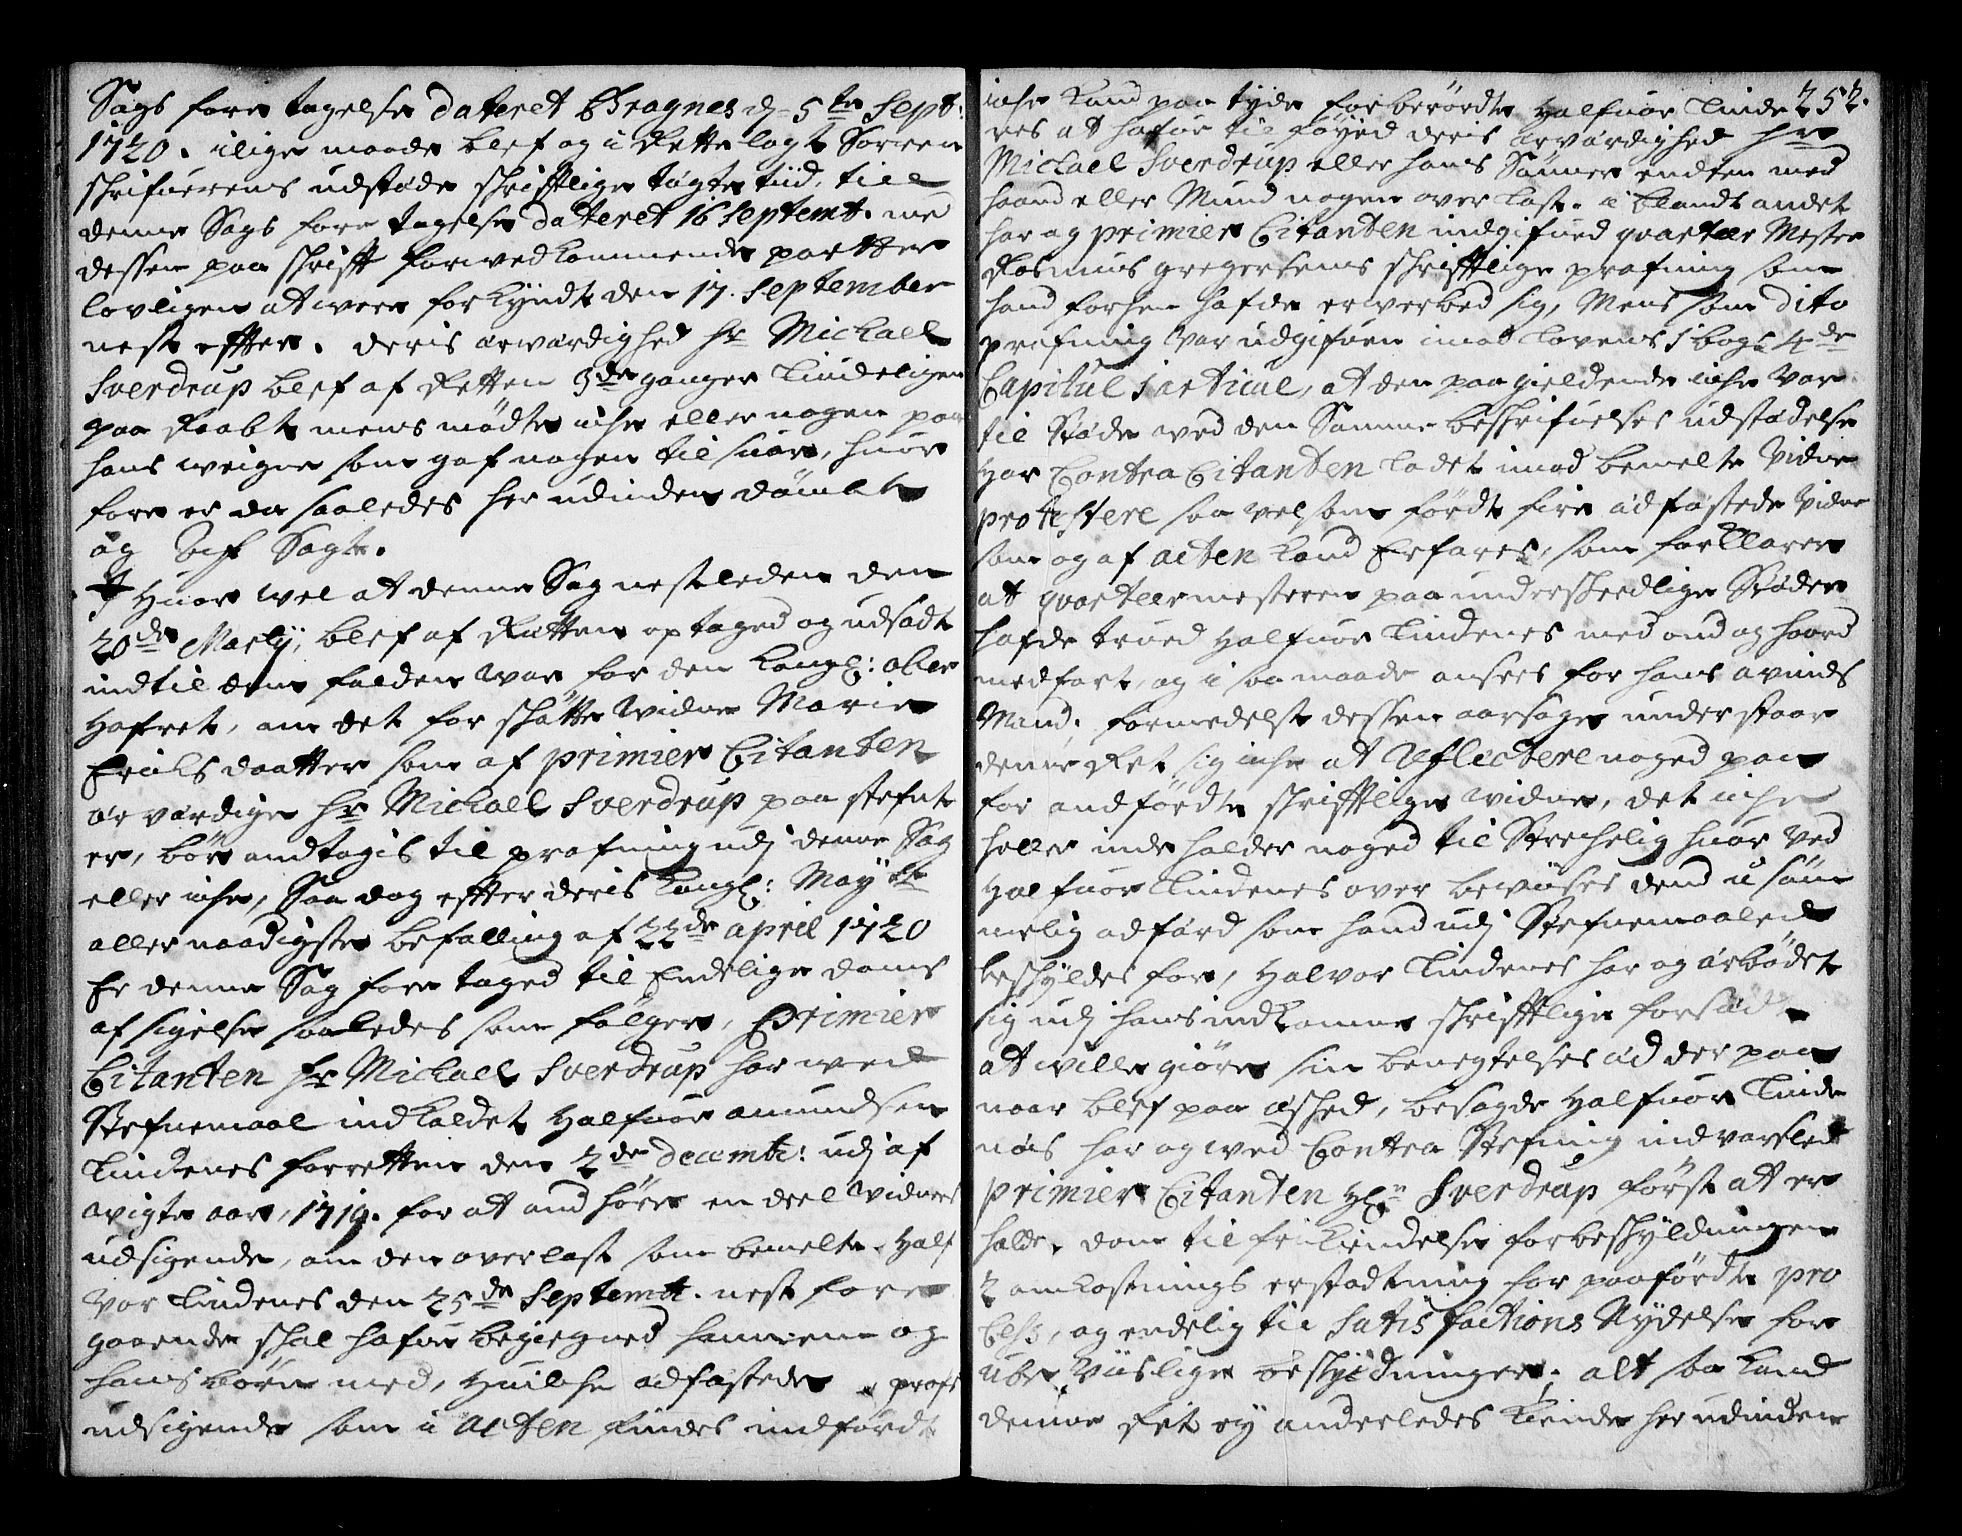 Sags fore tagelse dateret Bragnes d. 5te Sept:
1720. i lige maade blef og i Rette lagt Sorren
schrifuerens udstøde schriftlige tegte tiid, till
denne Sags fore tagelse dateret 16 Septemt. me
dessen paa schrifft forwedkommende partter
lovligen at were forkyndt den 17. September
nest effter. deris ærværdighed hr Michaell
Sverdrup blef af Retten 3de ganger tindeligen
paa Raabt mens mødte iche eller nogen paa
hans weigne som gaf nogen til suar, huor
fore er da saaledes her udinden dømbt
og Afsagt.
Huor wel at denne Sag nestleden den
20de Martij, blef af Retten optaged og udsadt
indtil dom falden war for den Kongl: ober
Hofret, om det for schøtte widne Marie
Erichs daatter som af primier Citanten
ærværdige hr Michaell Sverdrup paa stefnt
er, bør andtagis til prøfning udj denne Sag
eller iche, Saa dog effter deris Kongl: Mayts
allernaadigste befalling af 22de april 1720
Er denne Sag fore taged til Endelige doms
afsigelse saaledes som følger, Primier
Citanten hr Michaell Sverdrup har wed
Stefnemaal indkaldet Halfuor amundsen
Lindenes forretten den 2de decembr: udj af
wigte aar, 1719. for at and høre en deel widners
udsigende, om den overlast som bemelte Half
vor Lindenes den 25de Septembr. nest fore
gaaende schal hafue begiegned hannem og
hans børn med, Huilche adfæstede profs
udsigende som i acten findes indførdt
iche kand paa tyde forberørdte Halfuor Linde 252.
nes at hafue til føyed deris ærværdighed hr
Michael Sverdrup eller hans Sønner endten med
haand eller Mund nogen over last. i blandt andet
har og primier Citanten indgifued qvarteer Mester
Rasmus gregersens schrifftlige prøfning som
hand forhen hafde erverbed sig, Mens som dito
prøfning var udgifuen imod Lovens 1 bogs 4de
Capitul 1 articul, at den paa gieldende iche var
til Stæde wed den Samme beskrifuelses udstædelse
Har Contra Citanten ladet imod bemelte vidne
protestere saa vel som førdt fire ædfæstede vidne
som og af acten kand Erfares, som forklarer
at qvarteermesteren paa underscheedlige Stæder
hafde trued Halfuor Lindenes med ond og haard
medfart, og i saa maade ansees for hans avinds
Mand, formedelst dessen aarsage understaar
denne Ret sig iche at Reflectere noged paa
for andførdte schrifftlige widne, det iche
heller inde holder noged til Strechelig huor ved
Halfuor Lindenes over bewiises dend u søm
melig adfærd som hand udj Stefnemaaled
beschyldes for, Halvor Lindenes har og ærbødet
sig udj hans indkomne schrifftlige forsæt
at wille giøre sin benegtelses æd der paa
naar blef paa æshed, besagde Halfuor Linde
næs har og wed Contra Stefning indvarsled
primier Citanten Hr Sverdrup først at er
holde dom til frikiendelse for beschyldningen
2 omkostnings erstadtning for paaførdte pro
Cess, og endelig til Satisfactions Nydelse for
ube viislige beschyldninger, alt saa kand
denne Ret ey anderledes kiende her udinden